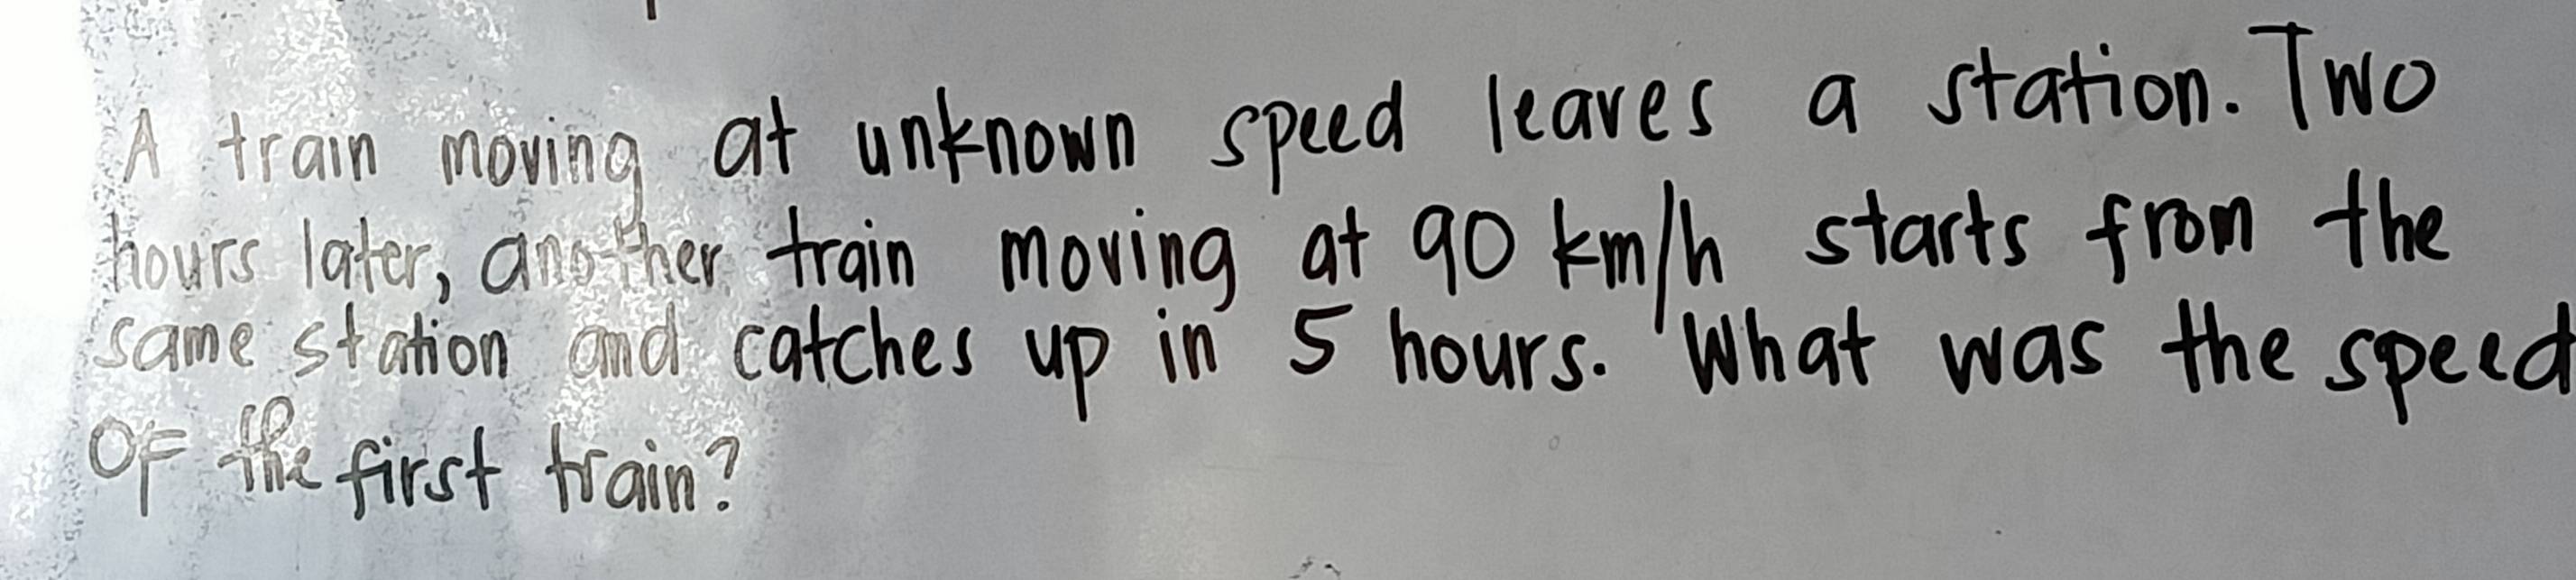 A train moving at unknown speed leaves a station. Two
hours later, another train moving at 90 km/h starts from the
same station and catches up in 5 hours. What was the speed
of the first train?